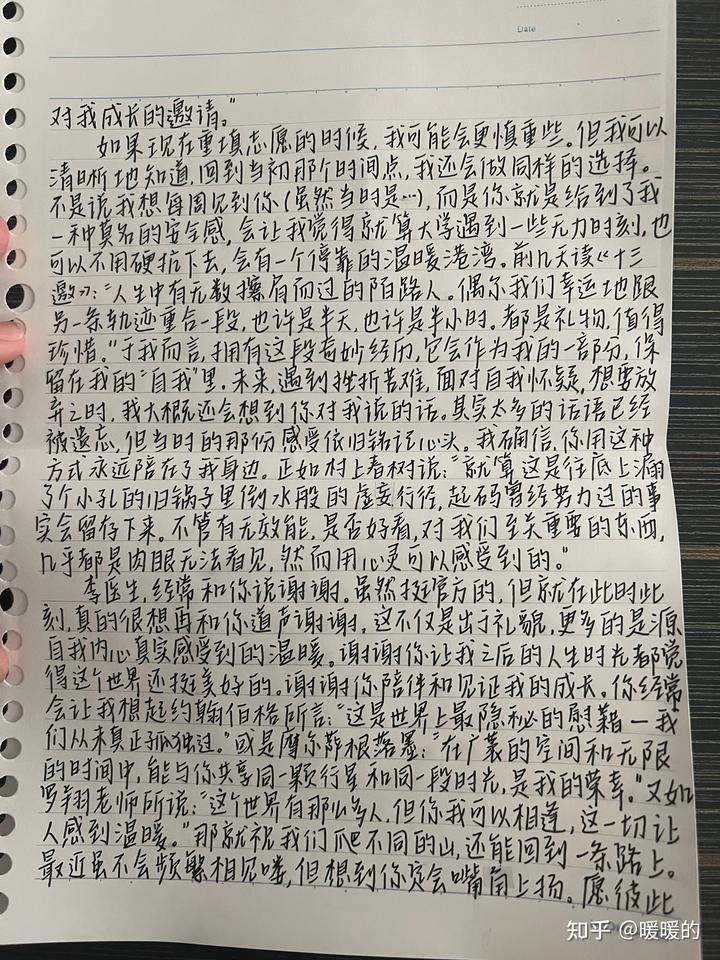 Date
对我成长的邀请。”
如果现在重填志愿的时候，我可能会更慎重些。但我可以
清晰地知道，回到当初那个时间点，我还会做同样的选择。
不是说我想每周见到你(虽然当时是…)，而是你就是给到了我
一种莫名的安全感，会让我觉得就算大学遇到一些无力时刻，也
可以不用硬抗下去，会有一个停靠的温暖港湾。前几天读《十三
邀》：“人生中有无数擦肩而过的陌路人。偶尔我们幸运地跟
另一条轨迹重合一段，也许是半天，也许是半小时。都是礼物，值得
珍惜。”于我而言，拥有这段奇妙经历，它会作为我的一部分，保
留在我的“自我”里。未来，遇到挫折苦难，面对自我怀疑，想要放
弃之时，我大概还会想到你对我说的话。其实太多的话语已经
被遗忘，但当时的那份感受依旧铭记心头。我确信，你用这种
方式永远陪在了我身边。正如村上春树说：“就算这是往底上漏
了个小孔的旧锅子里倒水般的虚妄行径，起码曾经努力过的事
实会留存下来。不管有无效能，是否好看，对我们至关重要的东西，
几乎都是肉眼无法看见，然而用心灵可以感受到的。”
李医生，经常和你说谢谢。虽然挺官方的，但就在此时此
刻，真的很想再和你道声谢谢，这不仅是出于礼貌，更多的是源
自我内心真实感受到的温暖。谢谢你让我之后的人生时光都觉
得这个世界还挺美好的。谢谢你陪伴和见证我的成长。你经常
会让我想起约翰伯格所言：“这是世界上最隐秘的慰藉一我
们从未真正孤独过。”或是摩尔萨根落墨：“在广袤的空间和无限
的时间中，能与你共享同一颗行星和同一段时光，是我的荣幸。”又如
罗翔老师所说：“这个世界有那么多人，但你我可以相逢，这一切让
人感到温暖。”那就祝我们爬不同的山，还能回到一条路上。
最近虽不会频繁相见喽，但想到你定会嘴角上扬。愿彼此
知乎 @暖暖的